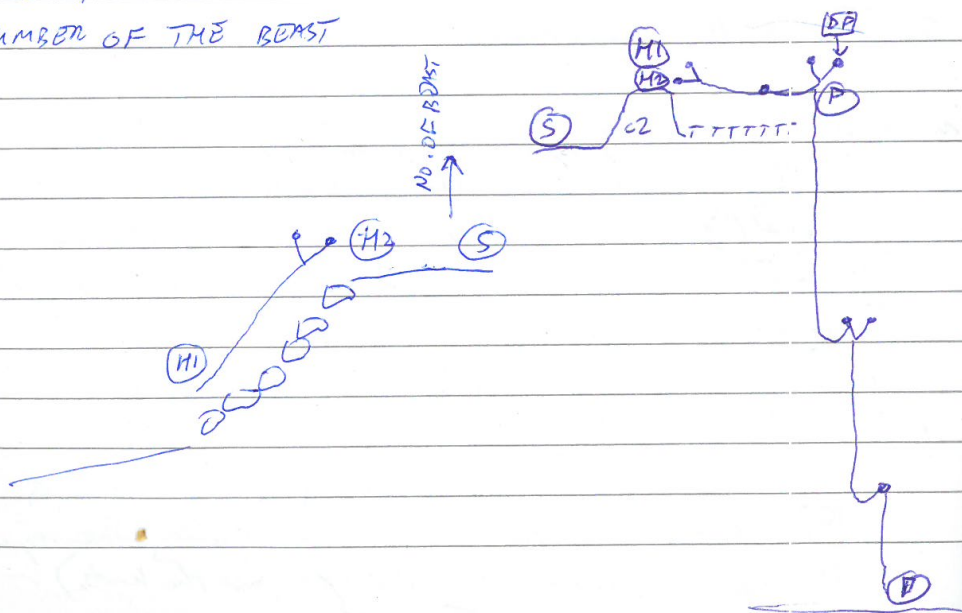 UMBER OF THE BEAST
DP
H1
H2
P
S
C2
TTTTTT
NO. OF BEAST
H2
S
H1